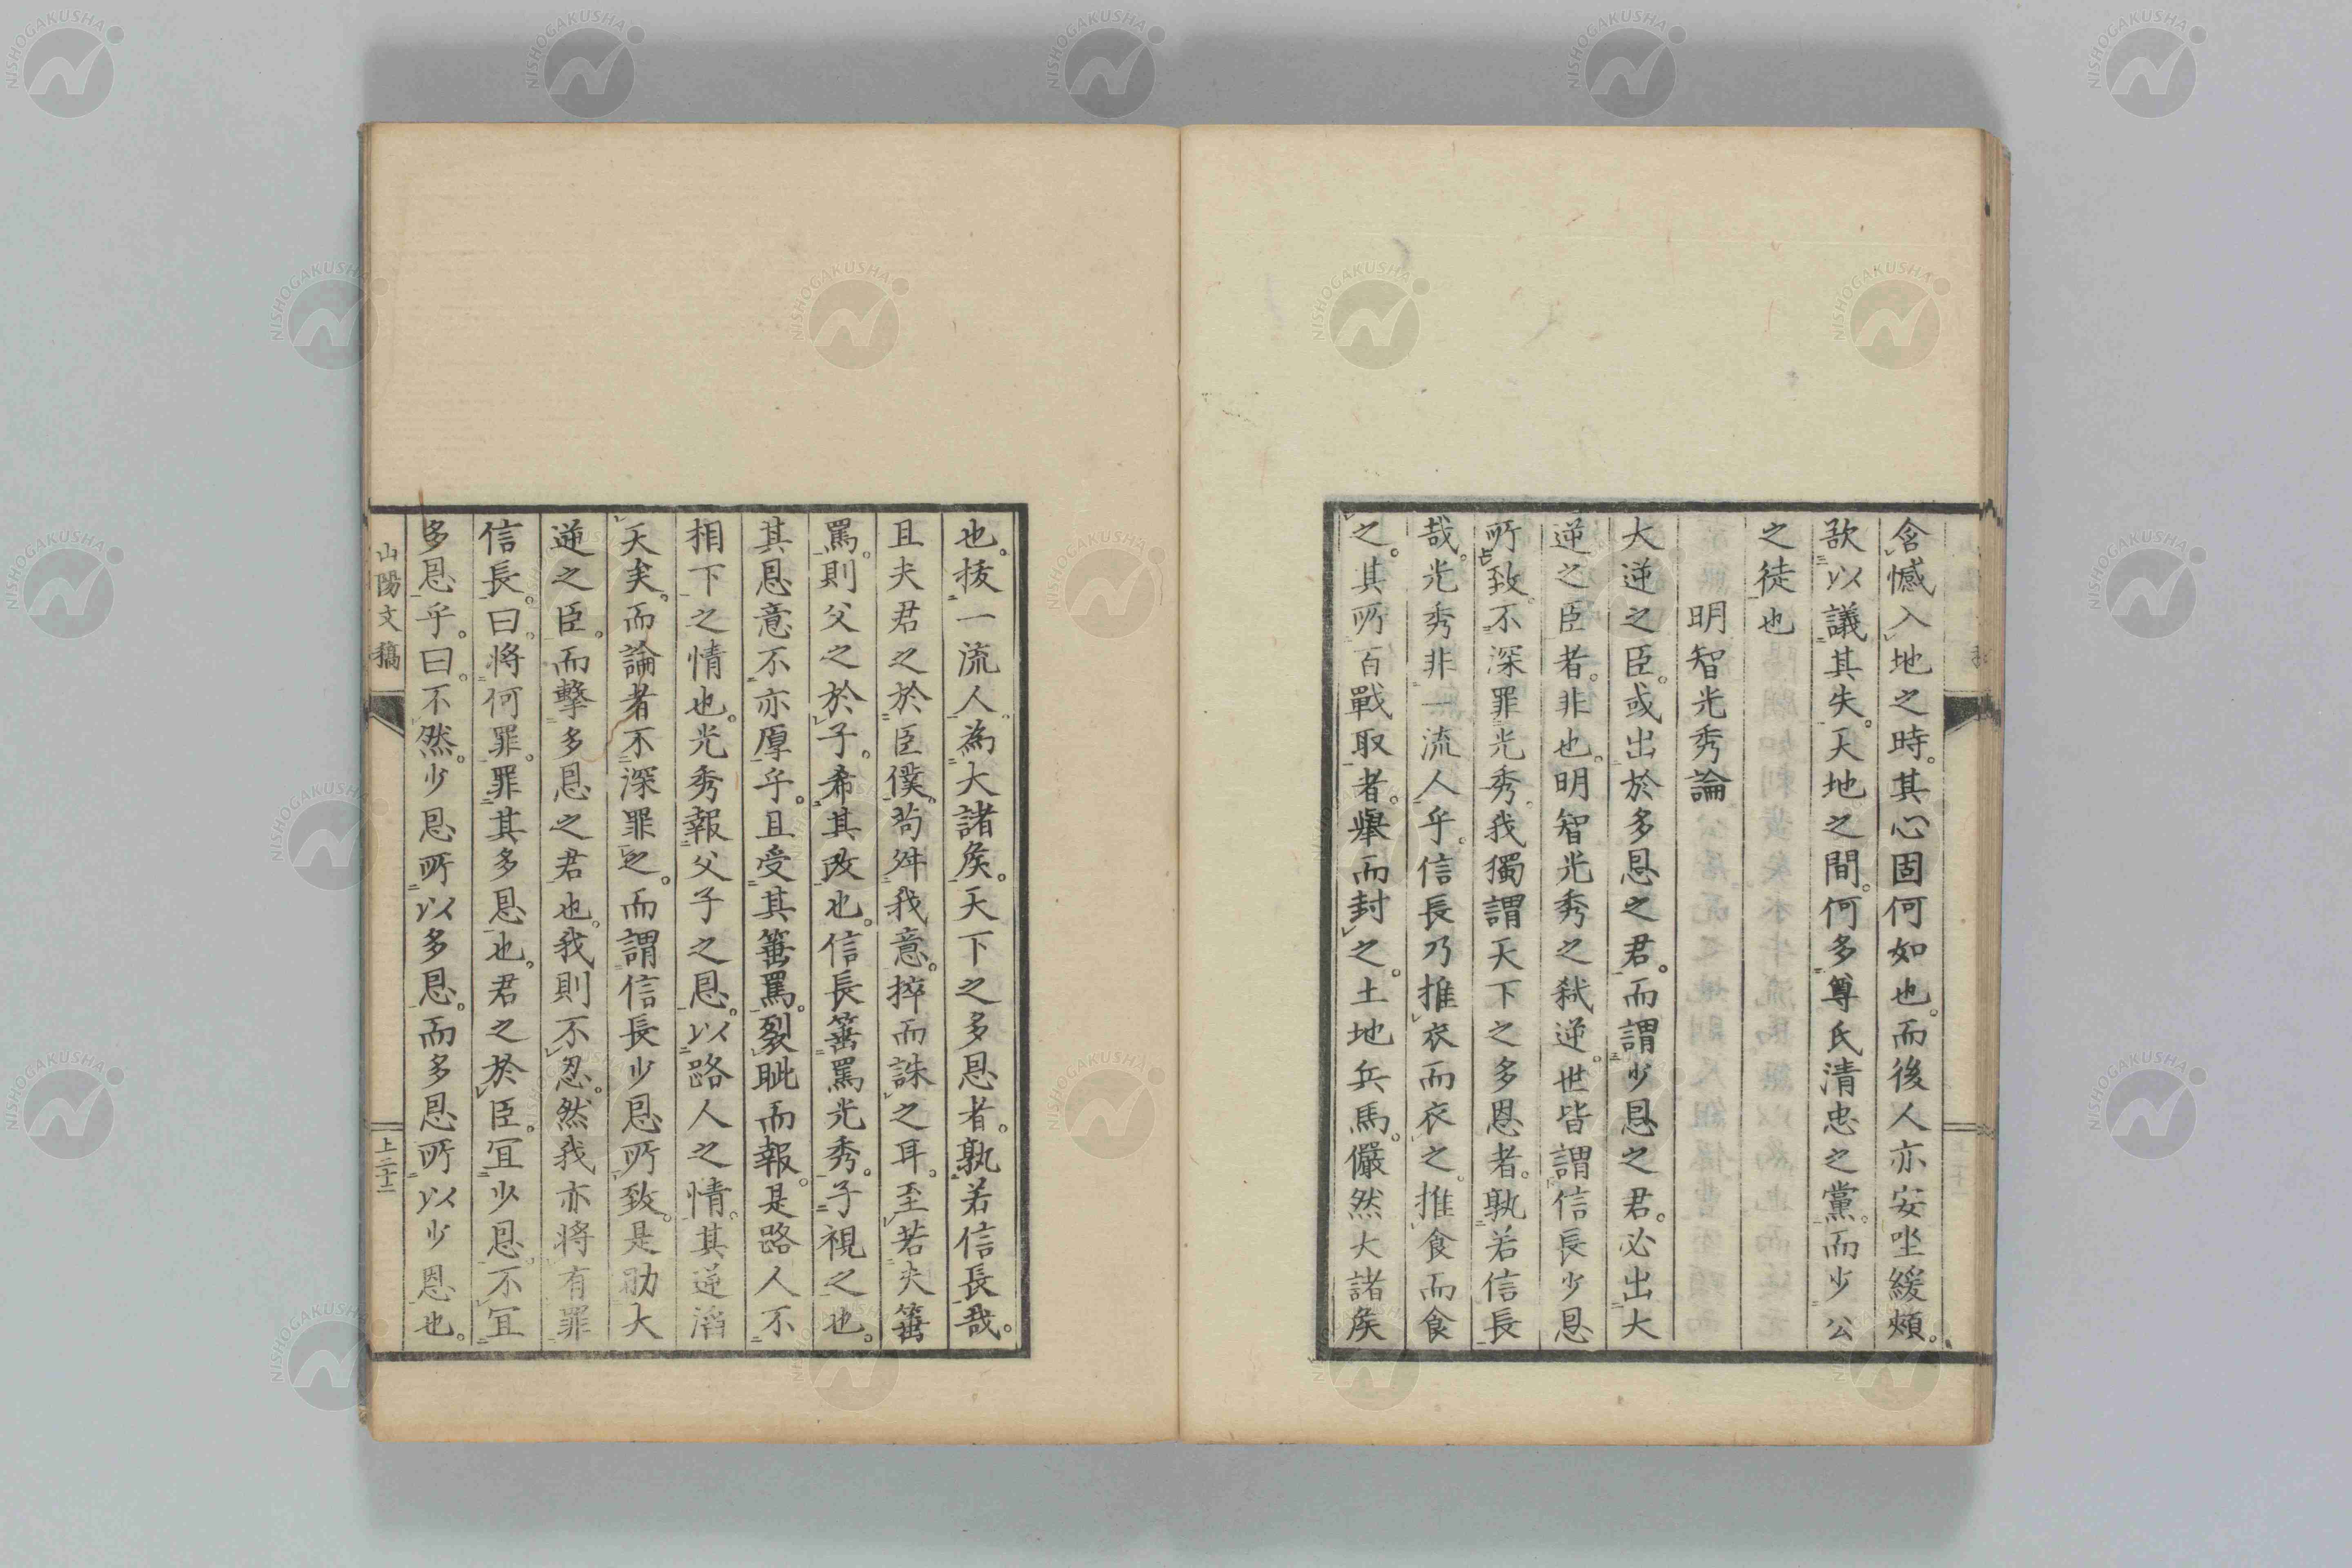 含憾入地之時。其心固何如也。而後人亦安坐緩頰。
歆以議其失。天地之間。何多尊氏清忠之黨。而少公
之徒也
明智光秀論
大逆之臣。或出於多恩之君。而謂少恩之君。必出大
逆之臣者。非也。明智光秀之弒逆。世皆謂信長少恩
所致。不深罪光秀。我獨謂天下之多恩者。孰若信長
哉。光秀非一流人乎。信長乃推衣而衣之。推食而食
之。其所百戰取者。舉而封之。土地兵馬。儼然大諸侯
也。拔一流人。為大諸侯。天下之多恩者。孰若信長哉。
且夫君之於臣僕。苟舛我意。捽而誅之耳。至若夫箠
罵。則父之於子。希其改也。信長箠罵光秀。子視之也。
其恩意不亦厚乎。且受其箠罵。裂眦而報。是路人不
相下之情也。光秀報父子之恩。以路人之情。其逆滔
天矣。而論者不深罪之。而謂信長少恩所致。是助大
逆之臣。而擊多恩之君也。我則不忍。然我亦將有罪
信長。曰。將何罪。罪其多恩也。君之於臣。宜少恩。不宜
多恩乎。曰。不然。少恩所以多恩。而多恩所以少恩也。
山陽文稿
上二十二